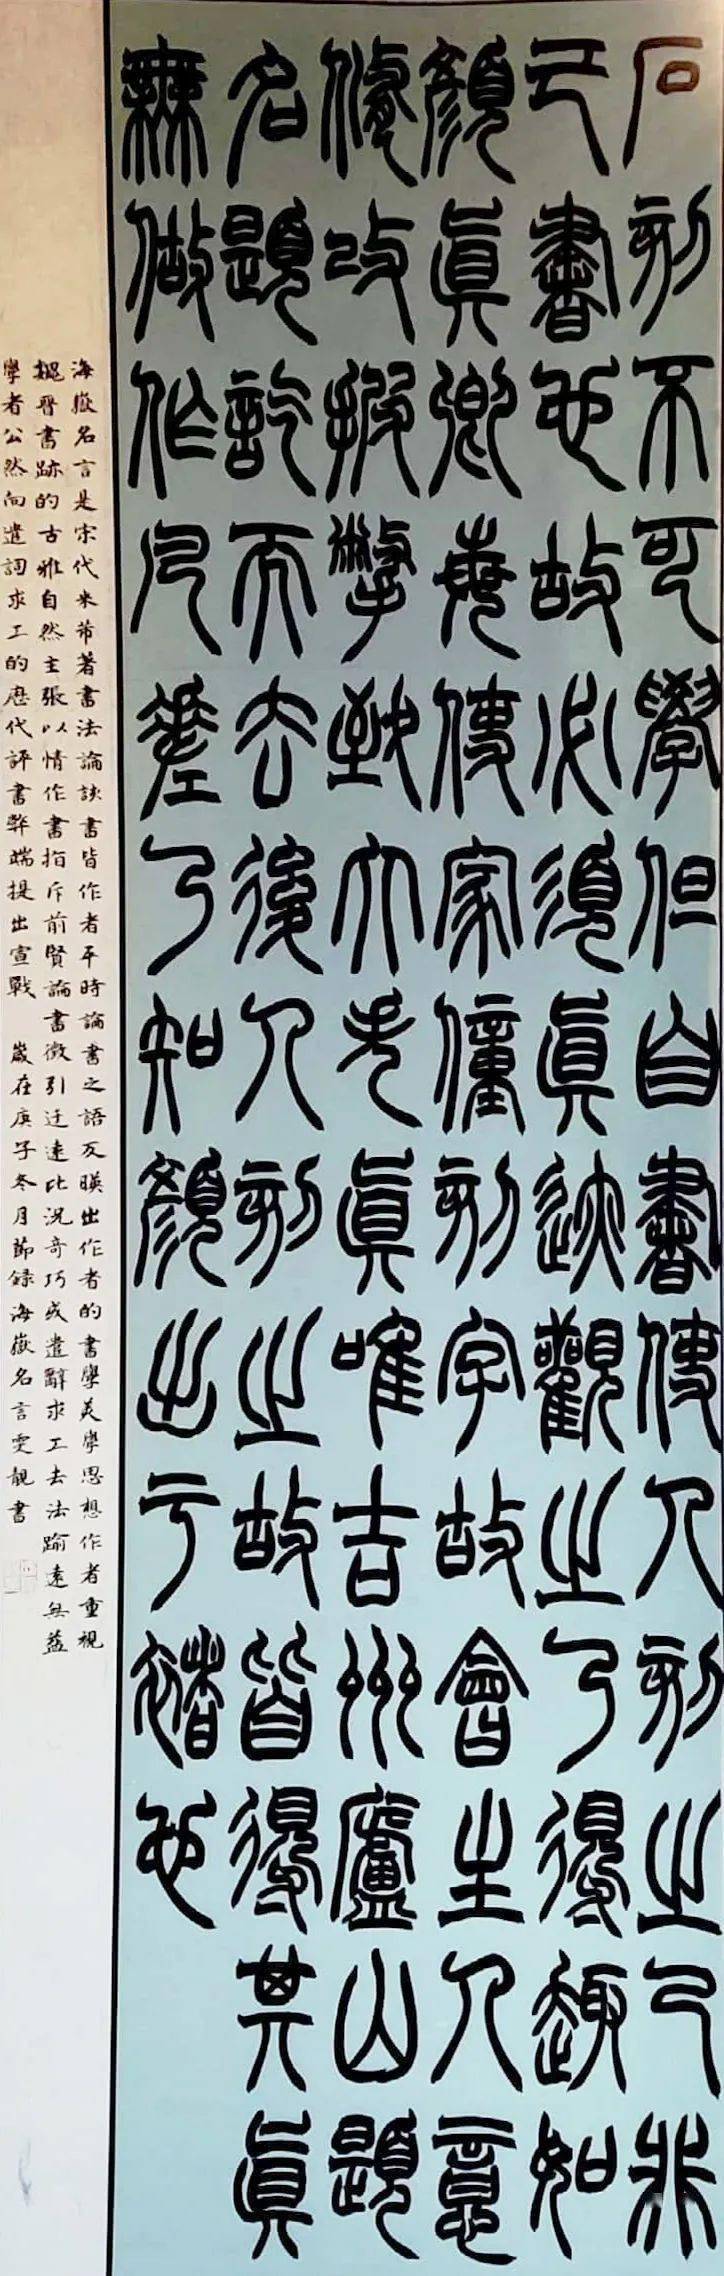 石刻不可學但自書使人刻之已非
己書也故必須眞迹觀之乃得趣如
顏眞卿每使家僮刻字故會主人意
修改披撇致大失眞唯吉州廬山題
名題訖而去後人刻之故皆得其眞
無做作凡差乃知顏出于褚也
海嶽名言是宋代米芾著書法論談書皆作者平時論書之語反暎出作者的書學美學思想作者重視
魏晉書跡的古雅自然主張以情作書指斥前賢論書徵引迂遠比況奇巧或遣辭求工去法踰遠無益
學者公然向遣詞求工的歷代評書弊端提出宣戰 歲在庚子冬月節錄海嶽名言雯靚書